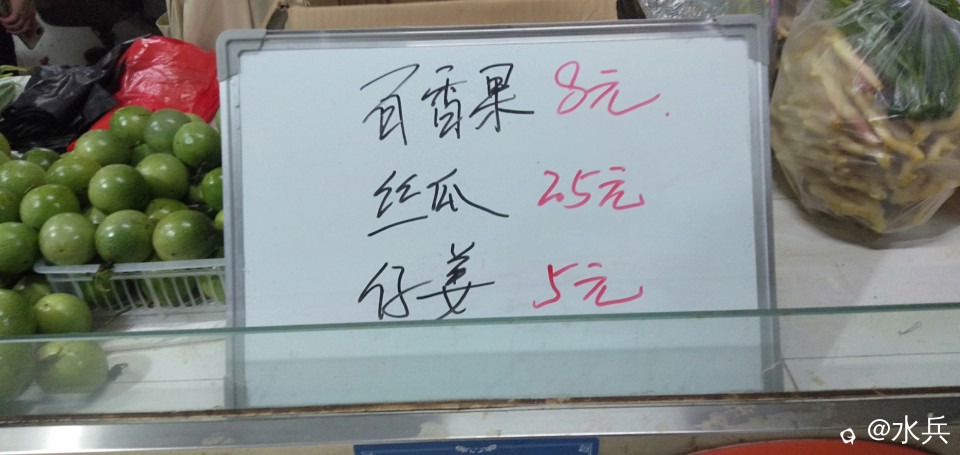 百香果 8元
丝瓜 25元
仔姜 5元
@水兵